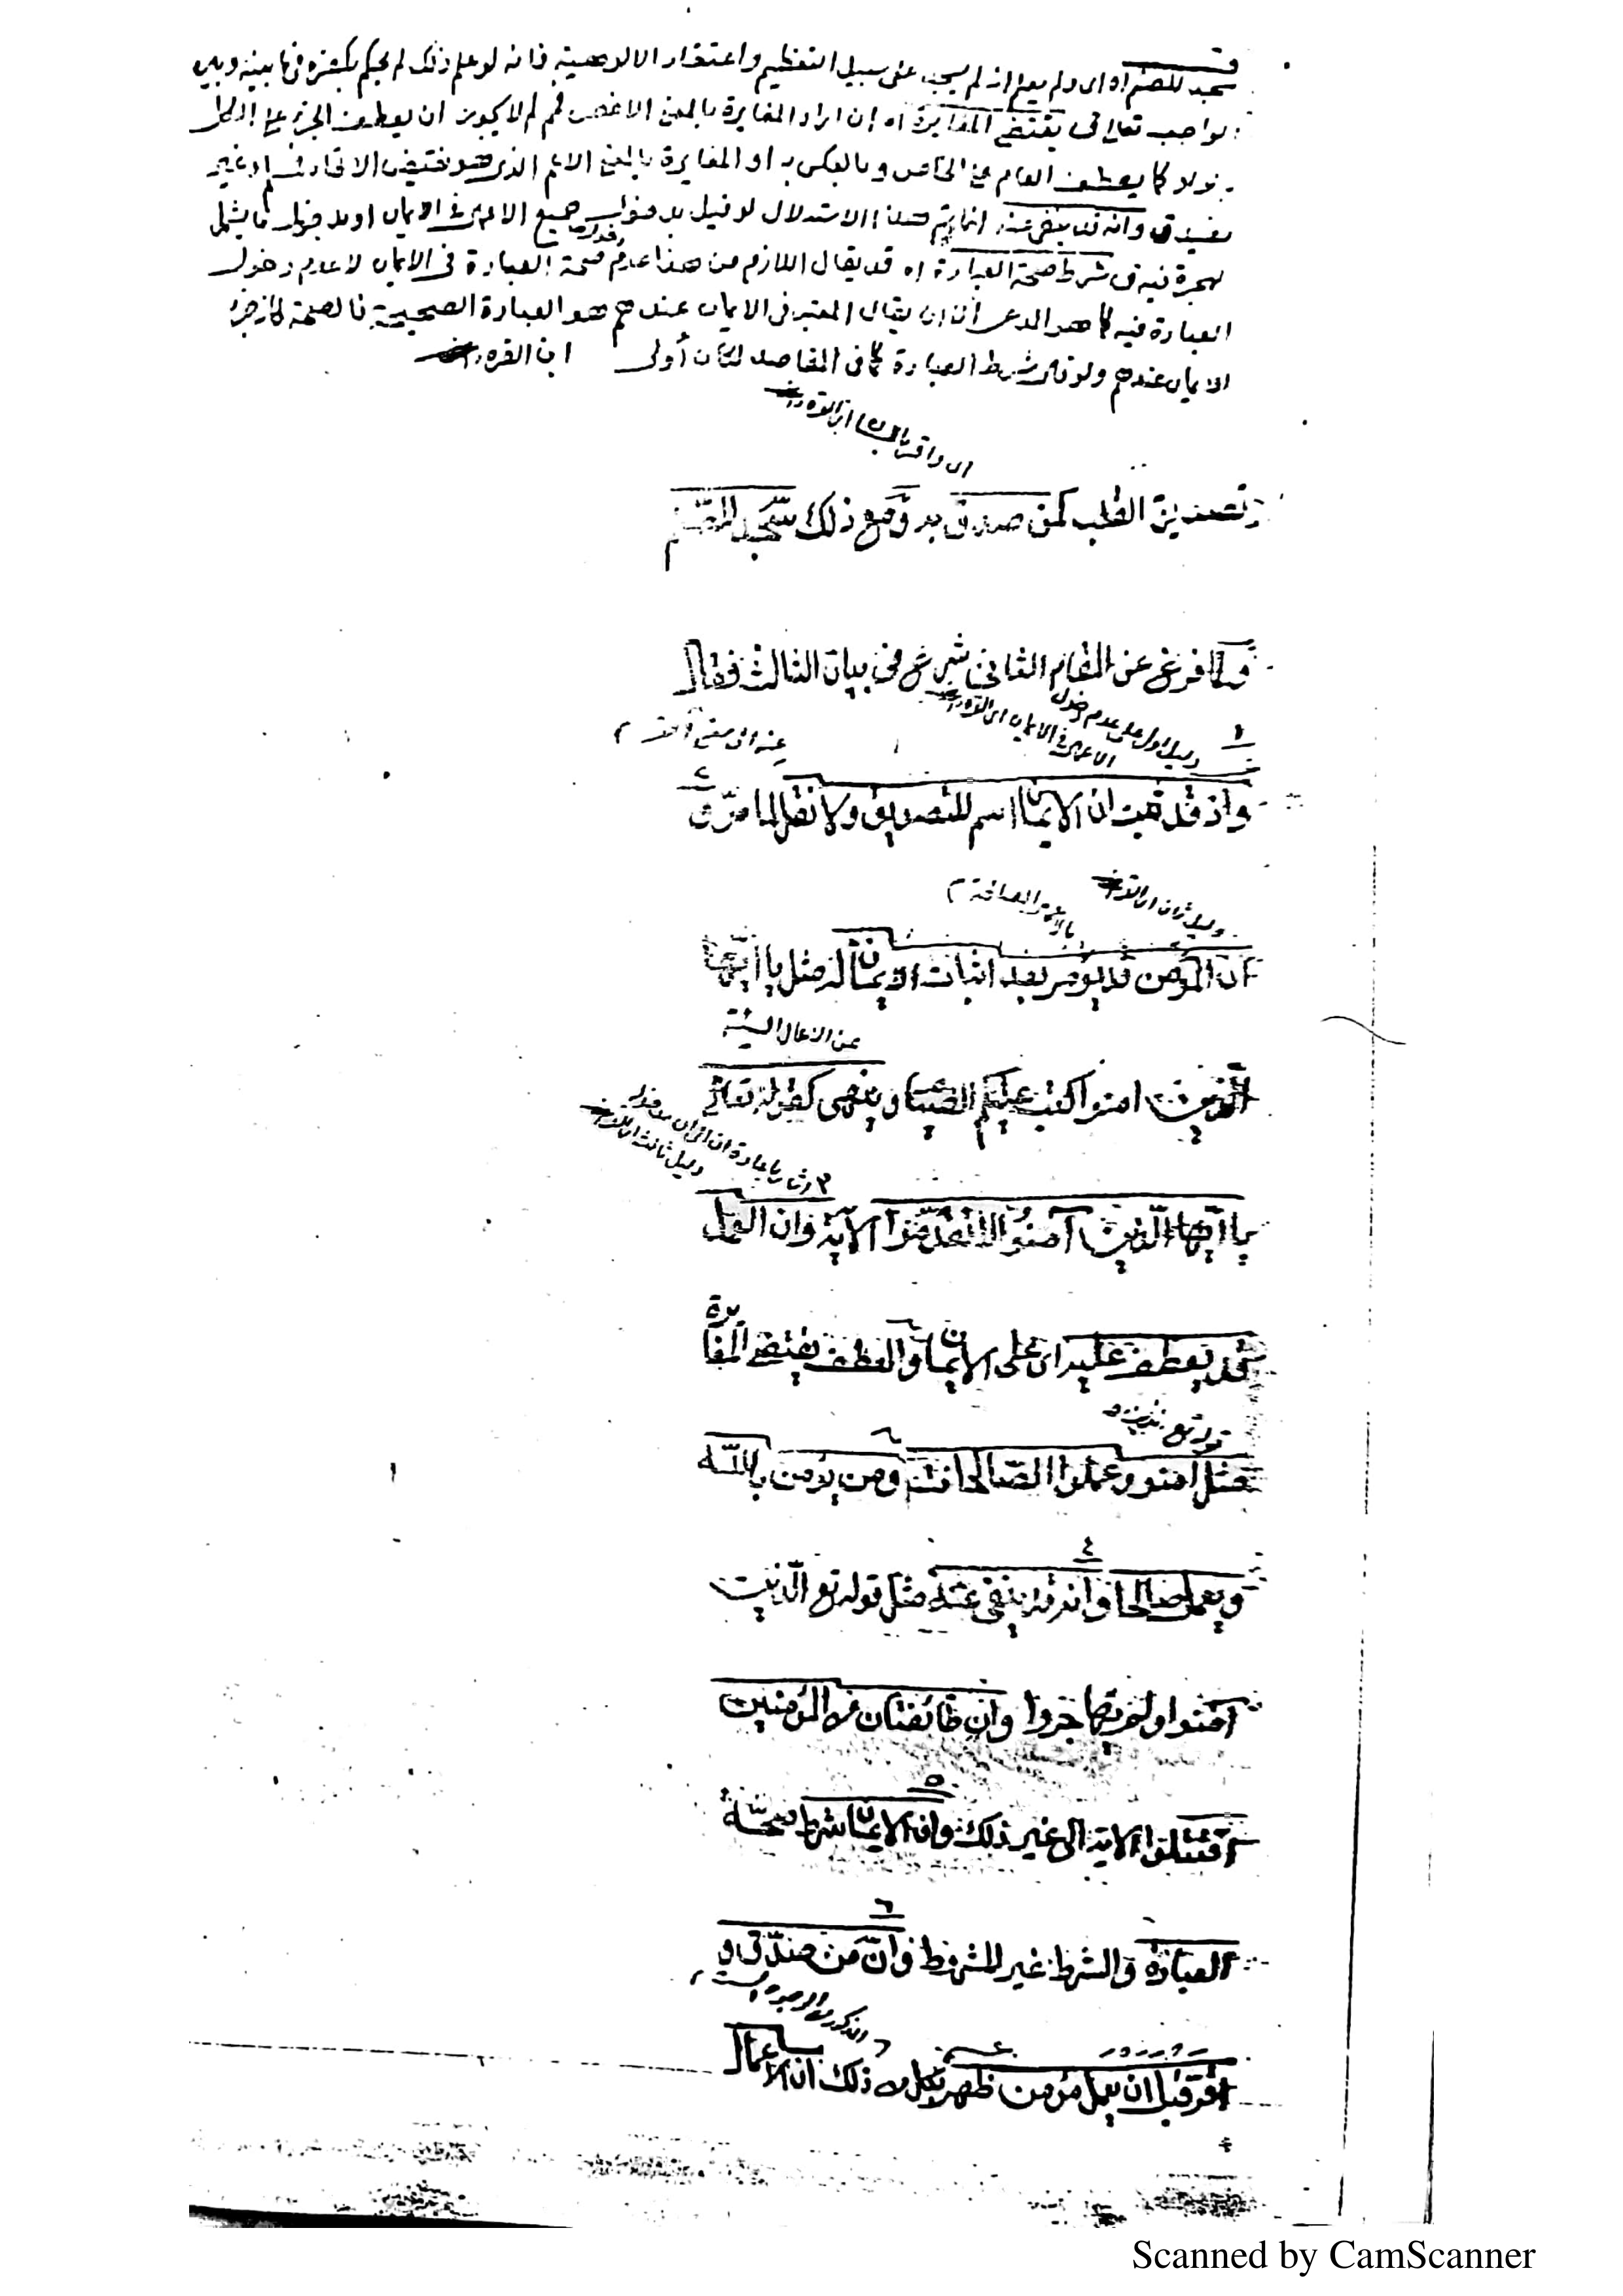 سجد للصنم اه اى ولم يعلم انه لم يسجد على سبيل التعظيم واعتقاد الالوهية فانه لو علم ذلك لم يحكم بكفره فيما بينه وبين
تعالى يقتضى المغايرة اه ان اراد المغايرة بالمعنى الاخص فلم لا يجوز ان يعطف الجزء على الكل
كما يعطف العام على الخاص وبالعكس او المغايرة بالمعنى الاعم الذى هو نقيض الاتحاد فمسلم وغير
مفيد وانه قد ينفى عنه انما يتم هذا الاستدلال لو قيل بدخول جميع الاعمال فى الايمان
شرط صحة العبادة اه قد يقال اللازم من هذا عدم دخول صحة العبادة فى الايمان لا عدم دخول
العبادة فيه كما هو المدعى الا ان يقال المعتبر فى الايمان عندهم هو العبادة الصحيحة فالصحة كالجزء
الايمان عندهم ولو قال شرط العبادة كما فى المقاصد لكان أولى ابن القره داغى
اى واقر باللسان ابن القره داغى
تصديق القلب كمن صدق به ومع ذلك سجد للصنم
ولما فرغ عن المقام الثانى شرع فى بيان الثالث فقال
١ دليل اول على عدم دخول
الاعمال فى الايمان ابن القره داغى
عنه الى معنى آخر م
٢
واذ قد ثبت ان الايمان اسم للتصديق ولا نقل لما مرّ و
دليل ثان ابن القره داغى
بالاعمال الصالحة م
ان المؤمن قد يؤمر بعد اثبات الايمان له مثل يا ايّها
عن الاعمال السيئة
الّذين امنوا كتب عليكم الصيام وينهى كقوله تعالى
دليل ثالث ابن القره داغى
يا ايّها الّذين آمنوا لا تقدّموا الآية وان العمل
قد يعطف عليه اى على الايمان والعطف يقتضى المغايرة
قوله تع
مثل امنوا وعملوا الصّالحات ومن يؤمن باللّه
٤
ويعمل صالحا وانه قد ينفى عنه مثل قوله تع الّذين
آمنوا ولم يهاجروا وان طائفتان من المؤمنين
٥
اقتتلوا الاية الى غير ذلك وان الايمان شرط صحّة
٦
العبادة والشرط غير المشروط وانّ من صدّق و
المذكورة
اقرّ قبل ان يعمل مؤمن ظهر بكل ذلك ان الاعمال
Scanned by CamScanner